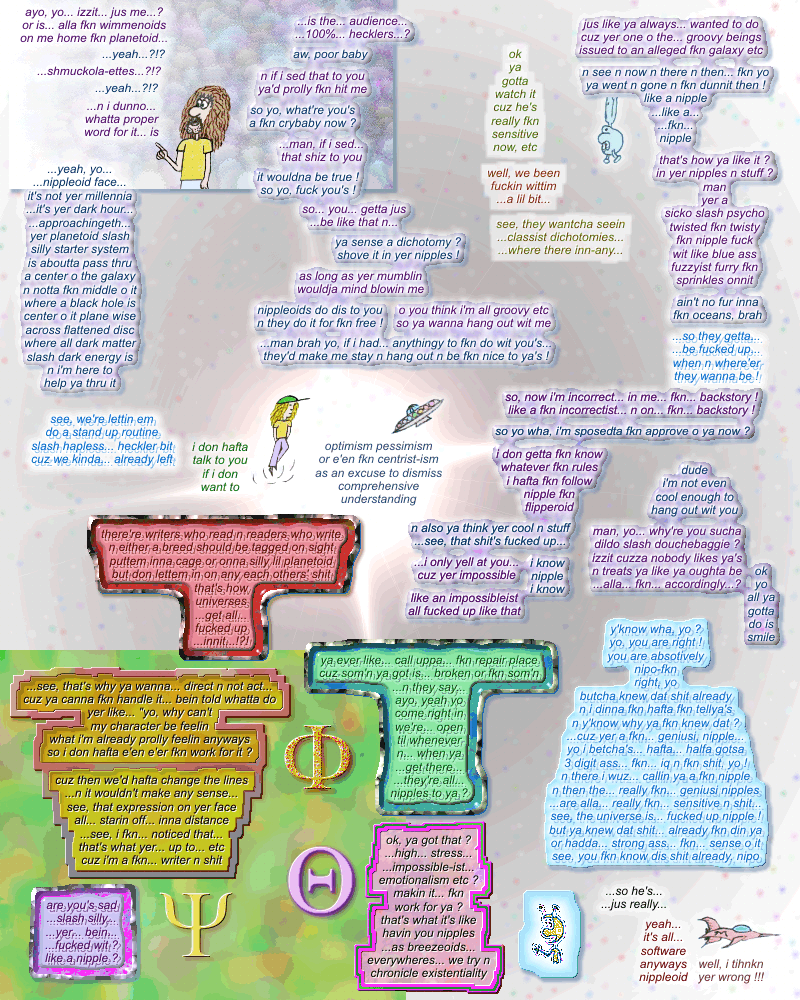 ayo, yo... izzit... jus me...?
or is... alla fkn wimmenoids
on me home fkn planetoid...
...yeah...?!?
...shmuckola-ettes...?!?
...yeah...?!?
...n i dunno...
whatta proper
word for it... is
...is the... audience...
...100%... hecklers...?
aw, poor baby
n if i sed that to you
ya'd prolly fkn hit me
so yo, what're you's
a fkn crybaby now ?
...man, if i sed...
that shiz to you
it wouldna be true !
so yo, fuck you's !
so... you... getta jus
...be like that n...
ya sense a dichotomy ?
shove it in yer nipples !
as long as yer mumblin
wouldja mind blowin me
nippleoids do dis to you
n they do it for fkn free !
o you think i'm all groovy etc
so ya wanna hang out wit me
...man brah yo, if i had... anythingy to fkn do wit you's...
they'd make me stay n hang out n be fkn nice to ya's !
ok
ya
gotta
watch it
cuz he's
really fkn
sensitive
now, etc
well, we been
fuckin wittim
...a lil bit...
see, they wantcha seein
...classist dichotomies...
...where there inn-any...
jus like ya always... wanted to do
cuz yer one o the... groovy beings
issued to an alleged fkn galaxy etc
n see n now n there n then... fkn yo
ya went n gone n fkn dunnit then !
like a nipple
...like a...
...fkn...
nipple
that's how ya like it ?
in yer nipples n stuff ?
man
yer a
sicko slash psycho
twisted fkn twisty
fkn nipple fuck
wit like blue ass
fuzzyist furry fkn
sprinkles onnit
ain't no fur inna
fkn oceans, brah
...so they getta...
...be fucked up...
when n where'er
they wanna be !
...yeah, yo...
...nippleoid face...
it's not yer millennia
...it's yer dark hour...
...approachingeth...
yer planetoid slash
silly starter system
is aboutta pass thru
a center o the galaxy
n notta fkn middle o it
where a black hole is
center o it plane wise
across flattened disc
where all dark matter
slash dark energy is
n i'm here to
help ya thru it
see, we're lettin em
do a stand up routine
slash hapless... heckler bit
cuz we kinda... already left
i don hafta
talk to you
if i don
want to
optimism pessimism
or e'en fkn centrist-ism
as an excuse to dismiss
comprehensive
understanding
so, now i'm incorrect... in me... fkn... backstory !
like a fkn incorrectist... n on... fkn... backstory !
so yo wha, i'm sposedta fkn approve o ya now ?
i don getta fkn know
whatever fkn rules
i hafta fkn follow
nipple fkn
flipperoid
n also ya think yer cool n stuff
...see, that shit's fucked up...
...i only yell at you...
cuz yer impossible
i know
nipple
i know
like an impossibleist
all fucked up like that
dude
i'm not even
cool enough to
hang out wit you
man, yo... why're you sucha
dildo slash douchebaggie ?
izzit cuzza nobody likes ya's
n treats ya like ya oughta be
...alla... fkn... accordingly...?
ok
yo
all ya
gotta
do is
smile
there're writers who read n readers who write
n either a breed should be tagged on sight
puttem inna cage or onna silly lil planetoid
but don lettem in on any each others' shit
that's how
universes
...get all...
fucked up
...innit...?!
...see, that's why ya wanna... direct n not act...
cuz ya canna fkn handle it... bein told whatta do
yer like... "yo, why can't
my character be feelin
what i'm already prolly feelin anyways
so i don hafta e'en e'er fkn work for it ?
cuz then we'd hafta change the lines
...n it wouldn't make any sense...
see, that expression on yer face
all... starin off... inna distance
...see, i fkn... noticed that...
that's what yer... up to... etc
cuz i'm a fkn... writer n shit
Φ
ya ever like... call uppa... fkn repair place
cuz som'n ya got is... broken or fkn som'n
...n they say...
ayo, yeah yo
come right in
we're... open
til whenever
n... when ya
...get there...
...they're all...
nipples to ya ?
y'know wha, yo ?
yo, you are right !
you are absotively
nipo-fkn
right, yo
butcha knew dat shit already
n i dinna fkn hafta fkn tellya's
n y'know why ya fkn knew dat ?
...cuz yer a fkn... geniusi, nipple...
yo i betcha's... hafta... halfa gotsa
3 digit ass... fkn... iq n fkn shit, yo !
n there i wuz... callin ya a fkn nipple
n then the... really fkn... geniusi nipples
...are alla... really fkn... sensitive n shit...
see, the universe is... fucked up nipple !
but ya knew dat shit... already fkn din ya
or hadda... strong ass... fkn... sense o it
see, you fkn know dis shit already, nipo
are you's sad
...slash silly...
...yer... bein...
...fucked wit ?
like a nipple ?
Ψ
Θ
ok, ya got that ?
...high... stress...
...impossible-ist...
emotionalism etc ?
makin it... fkn
work for ya ?
that's what it's like
havin you nipples
...as breezeoids...
everywheres... we try n
chronicle existentiality
...so he's...
...jus really...
yeah...
it's all...
software
anyways
nippleoid
well, i tihnkn
yer wrong !!!